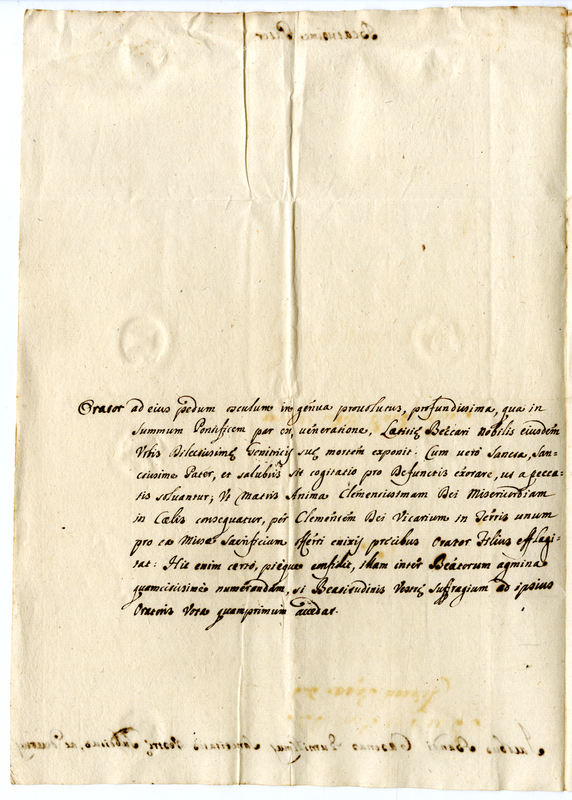 Orator ad eius pedum osculum in genua provolutus, profundissima, qua in
summum Pontificem par est veneratione, Nobilis eiusdem
Urbis Dilectissimę Genitricis suę mortem exponit. Cum vero Sancta, San-
ctissime Pater, et salubris sit cogitatio pro Defunctis exorare, ut a pecca-
tis solvantur; Ut Matris Anima Clementissimam Dei Misericordiam
in Cęlis consequatur, per Clementem Dei Vicarium in Terris unum
pro ea Missę Sacrificium offerri enixis precibus Orator Filius efflagi-
tat. Hic enim certo, pięque confidit, illam inter Beatorum agmina
quamcitissimè numerandam, si Beatitudinis Vestrę suffragium ad ipsius
Oratoris Vota quamprimum accedat.